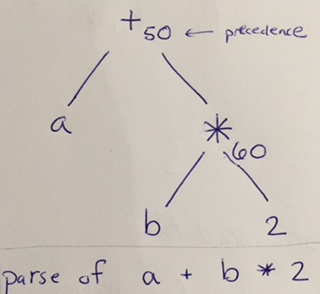 +50 ← precedence
a
*60
b 2
parse of a + b * 2